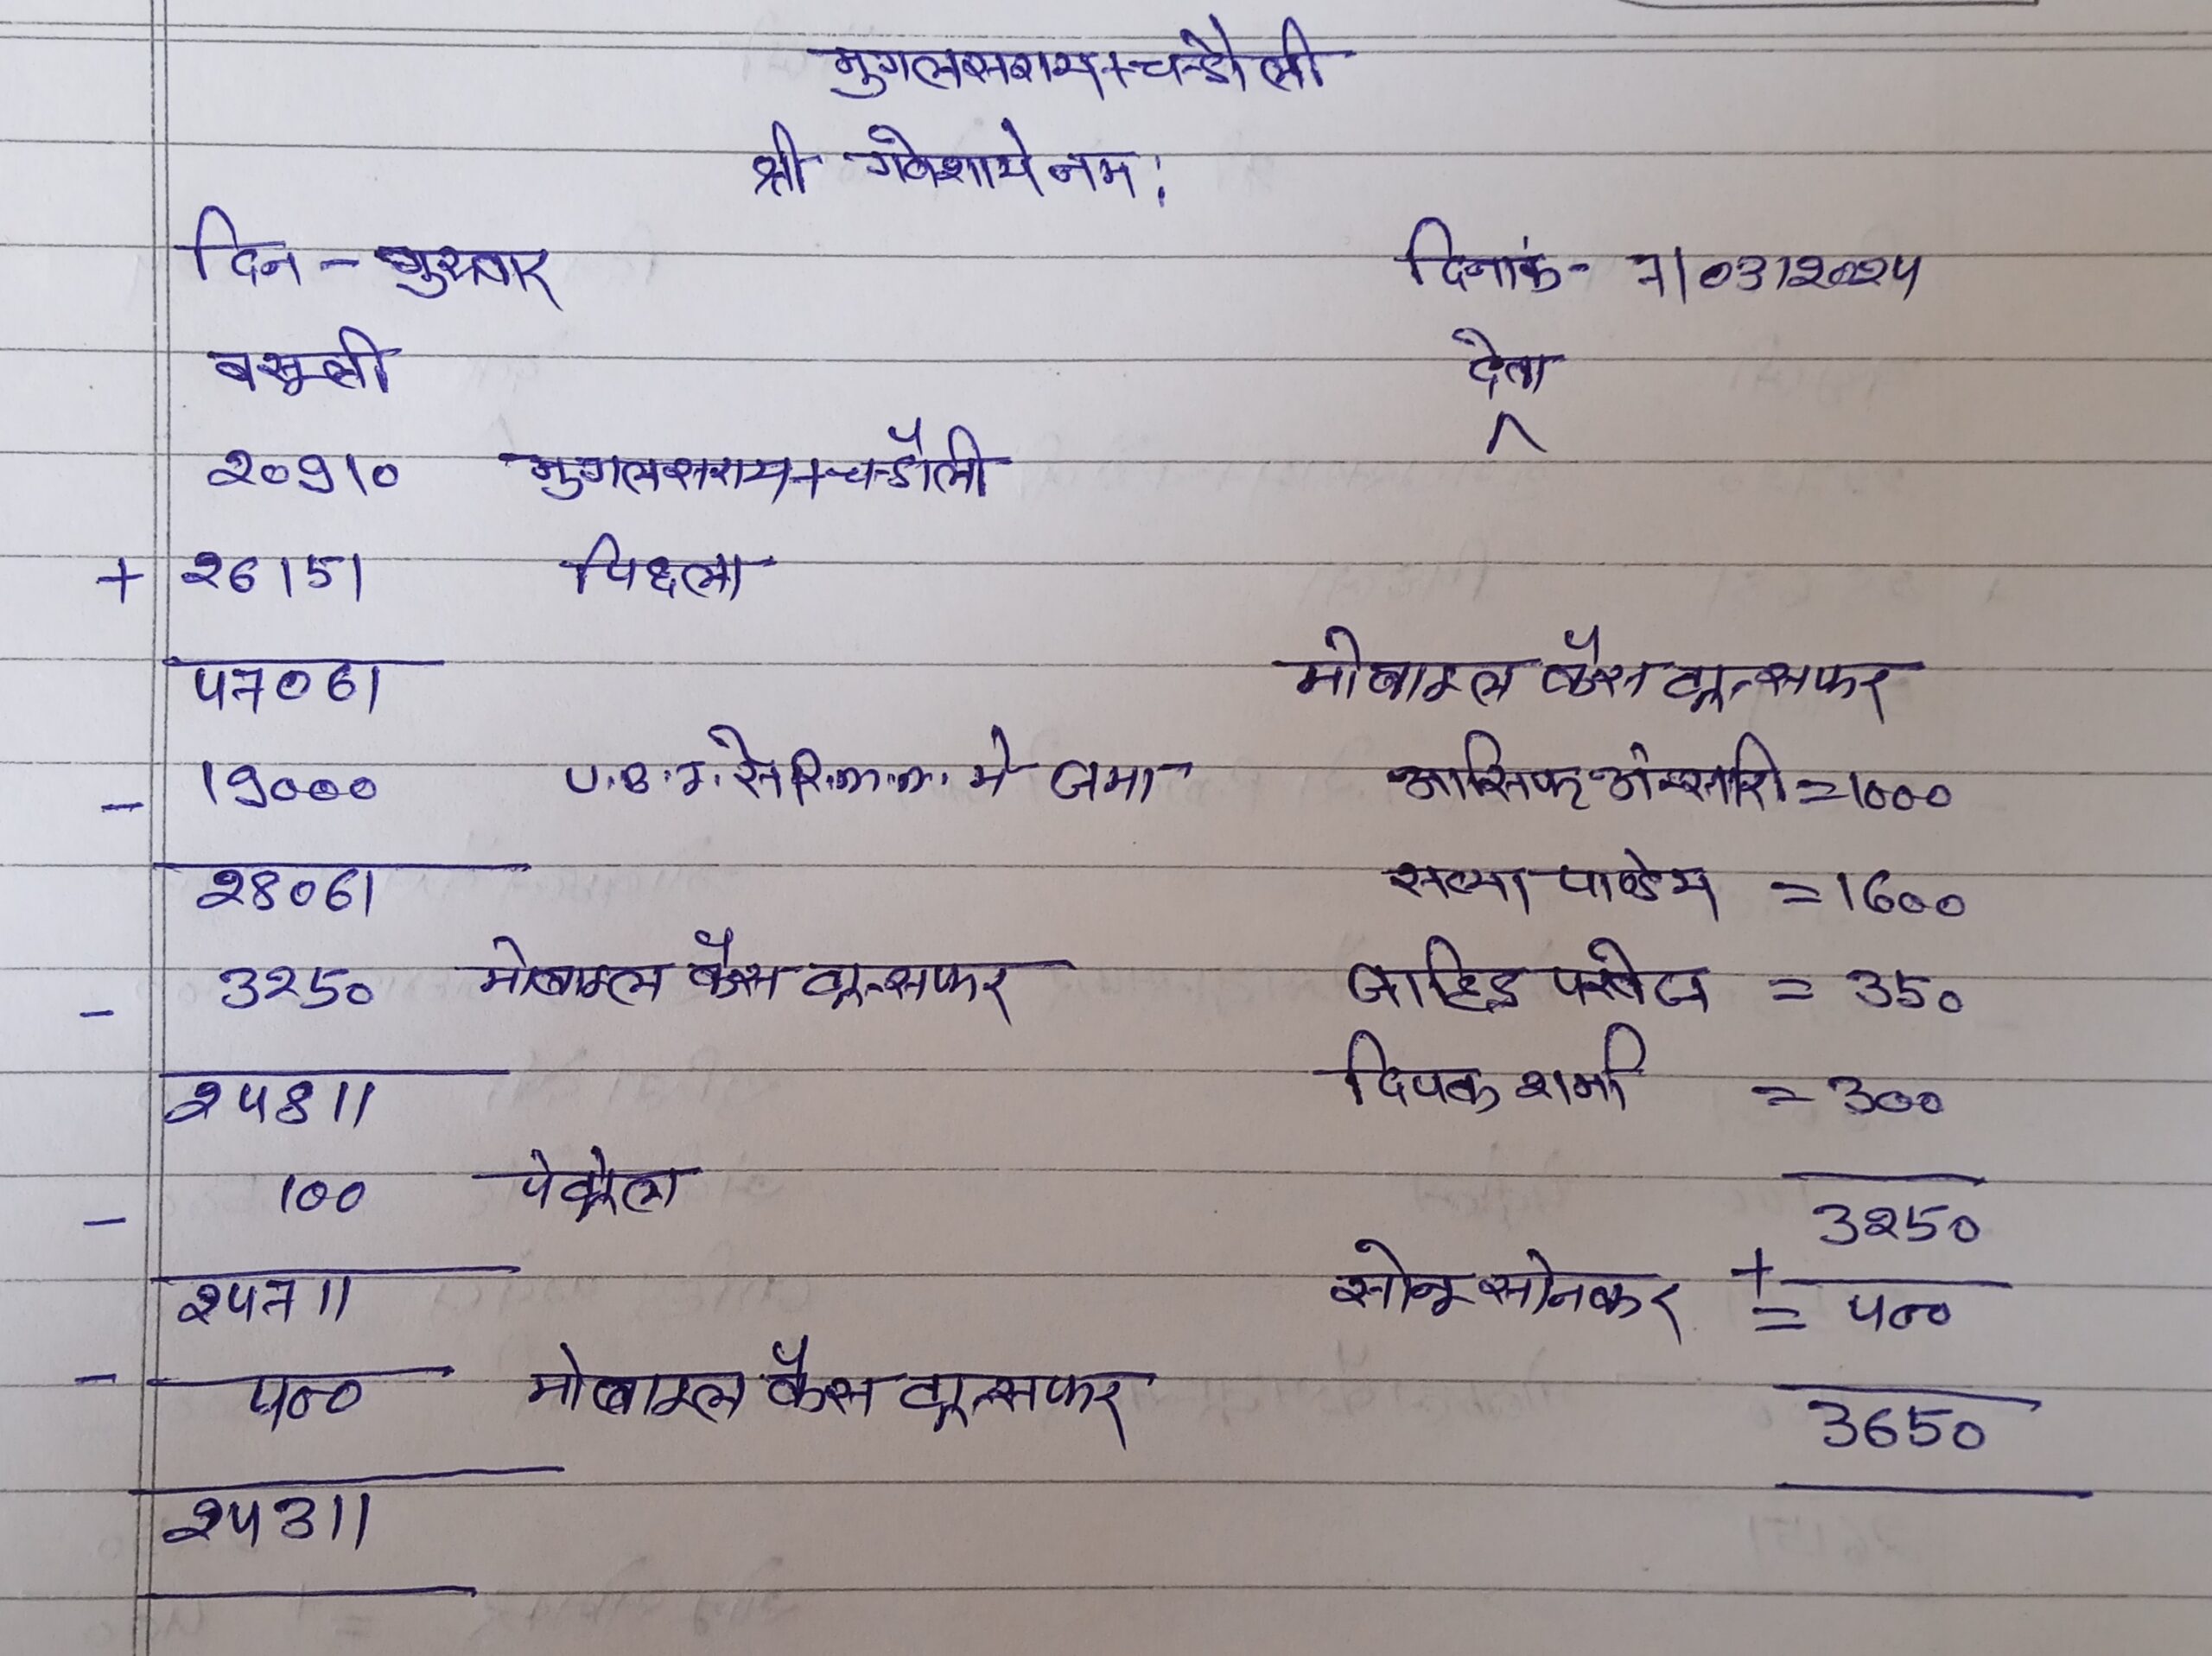 मुगलसराय+चन्डौली
श्री गणेशाये नम:
दिन - गुरुवार दिनांक- 7/03/2024
वसूली देना
20910 मुगलसराय+चन्डौली
+ 26151 पिछला
47061 मोबाइल कैस ट्रान्सफर
- 19000 में जमा आसिफ अंसारी =1000
28061 सत्या पाण्डेय =1600
- 3250 मोबाइल कैस ट्रान्सफर जाहिद परवेज = 350
24811 दिपक शर्मा = 300
- 100 पेट्रोल 3250
24711 सोनू सोनकर + = 400
- 400 मोबाइल कैस ट्रान्सफर 3650
24311